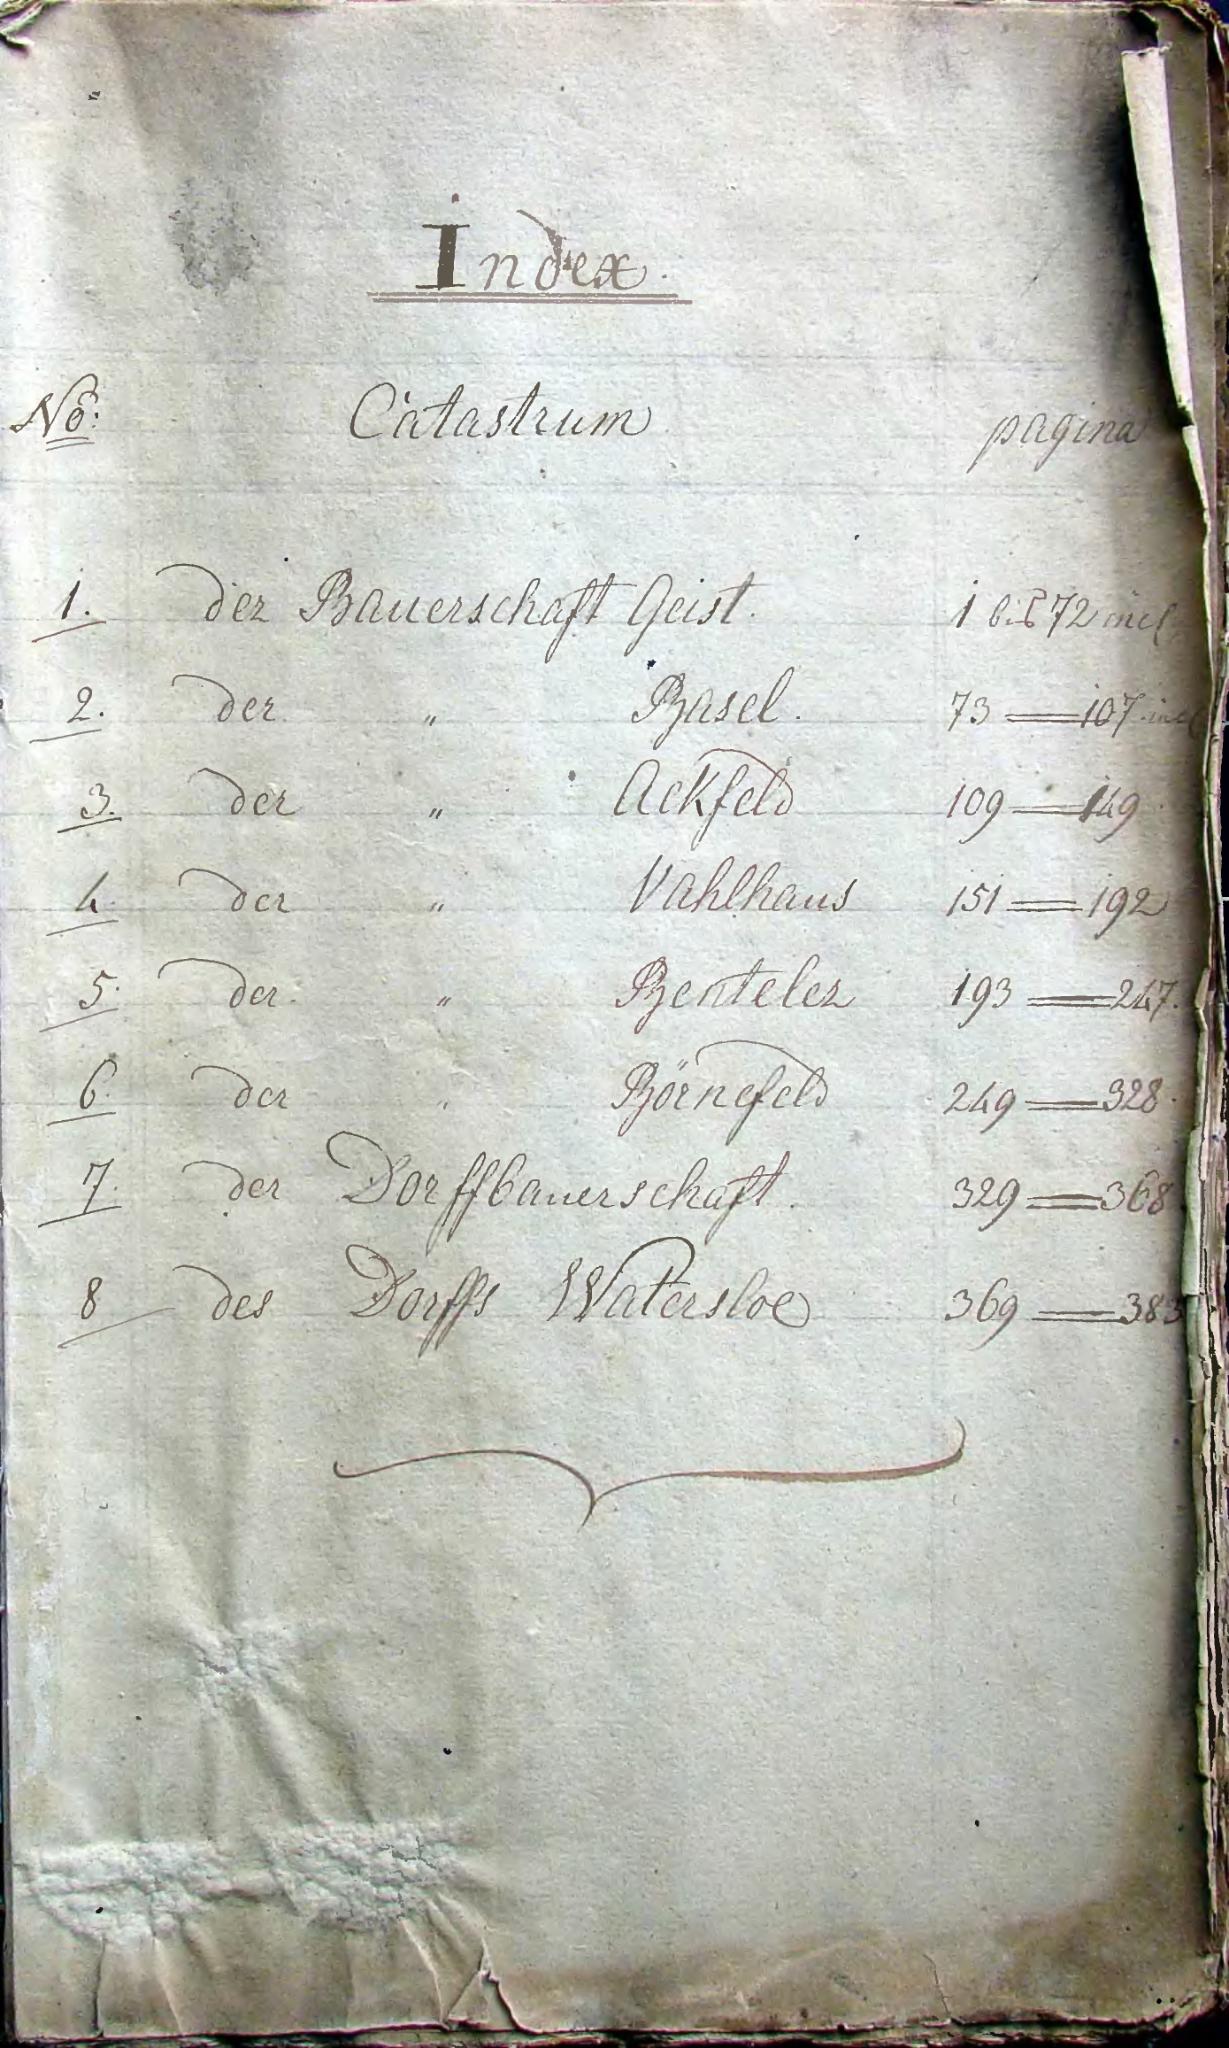 Index.
No: Catastrum pagina
1. der Bauerschaft Geist. 1 bis 72 incl
2. der " Basel. 73 = 107 incl
3. der " Ackfeld 109 = 149
4. der " Vahlhaus 151 = 192
5. der " Benteler 193 = 247.
6. der " Börnefeld 249 = 328.
7. der Dorffbauerschaft. 329 = 368
8 des Dorffs Watersloe 369 = 383